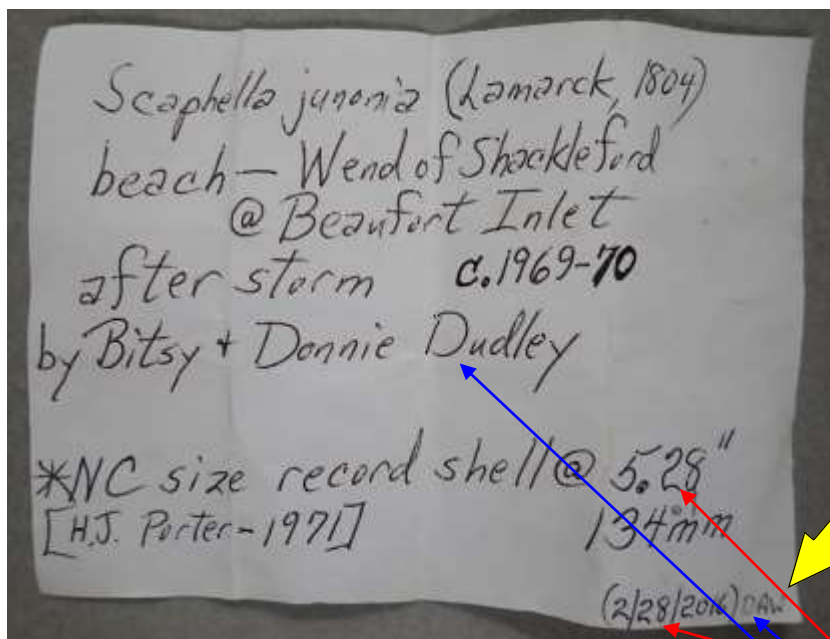 Scaphella junonia (Lamarck, 1804)
beach — W end of Shackleford
@ Beaufort Inlet
after storm c.1969-70
by Bitsy + Donnie Dudley
*NC size record shell @ 5.28"
[H.J. Porter - 1971] 134mm
(2/28/2016) DAW